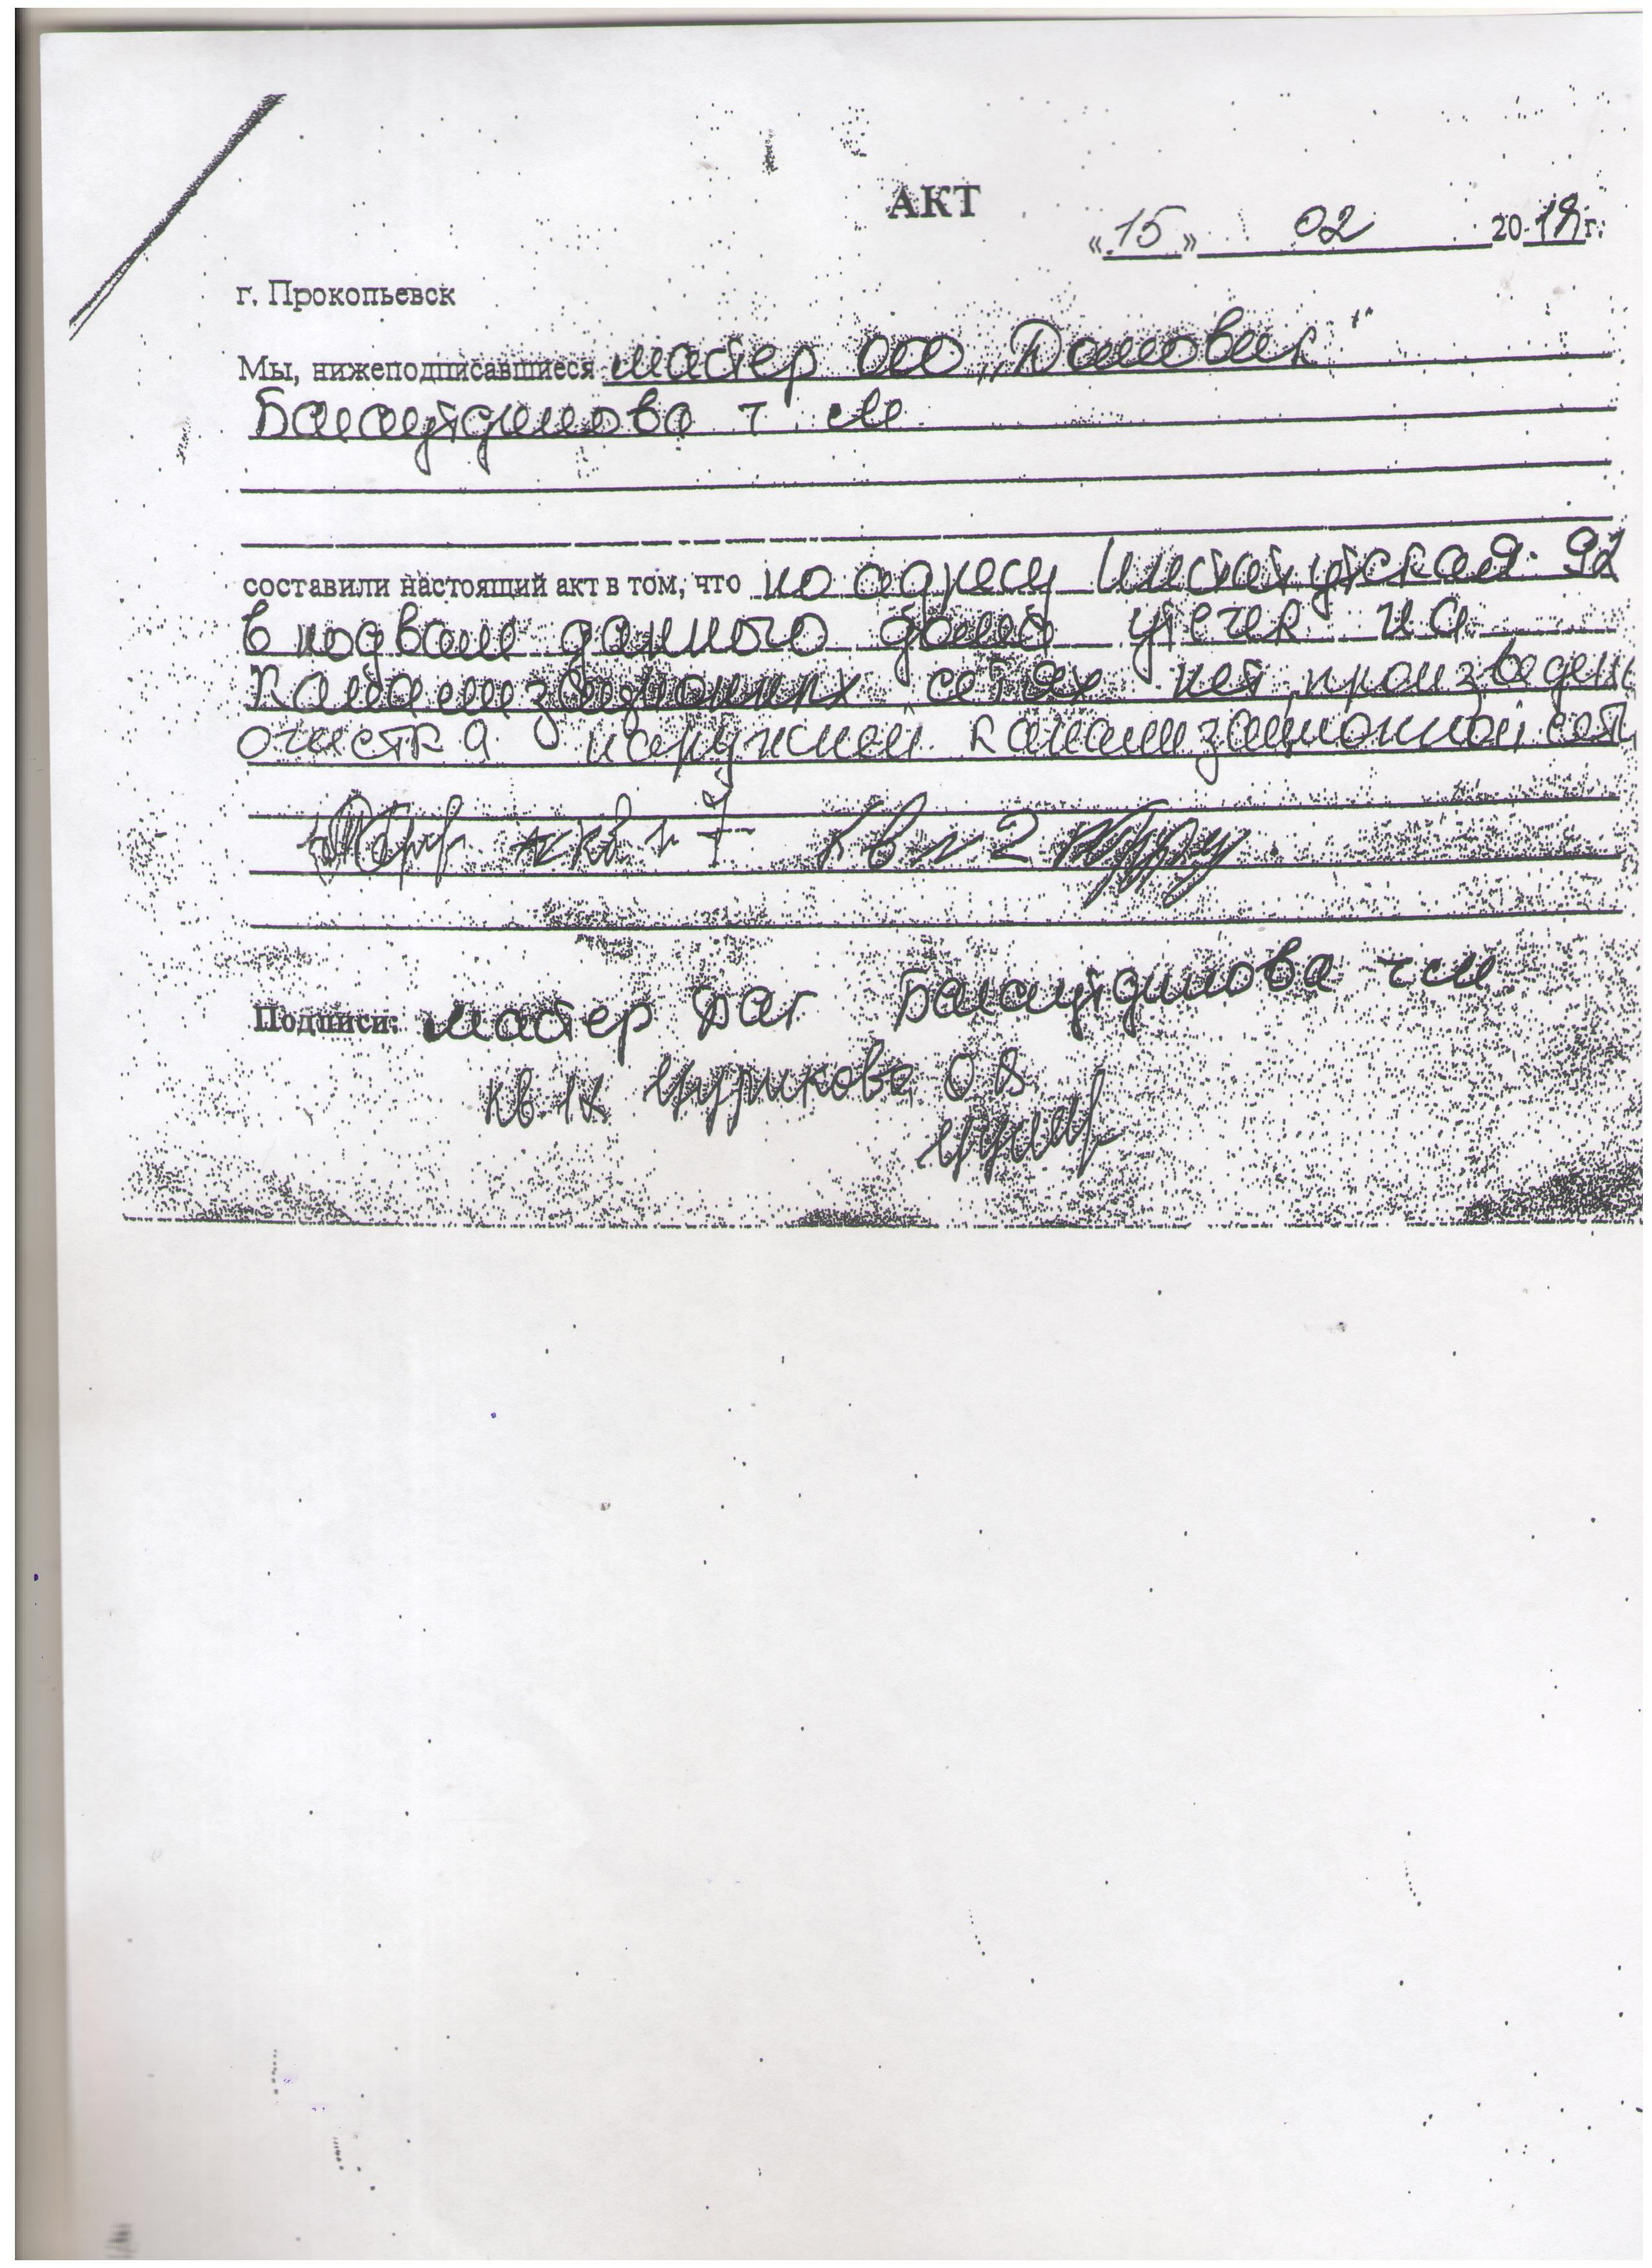 АКТ
«15» 02 2018 г.
г. Прокопьевск
Мы, нижеподписавшиеся мастер ооо „Домовик"
Багаутдинова т. м.
составили настоящий акт в том, что по адресу Институтская 92
в подвале данного дома утечек на
канализационных сетях нет, произведена
очистка наружной канализационной сети
кв 7 кв 2
Подписи: мастер Баг Багаутдинова т м
кв 14 Цурикова О В